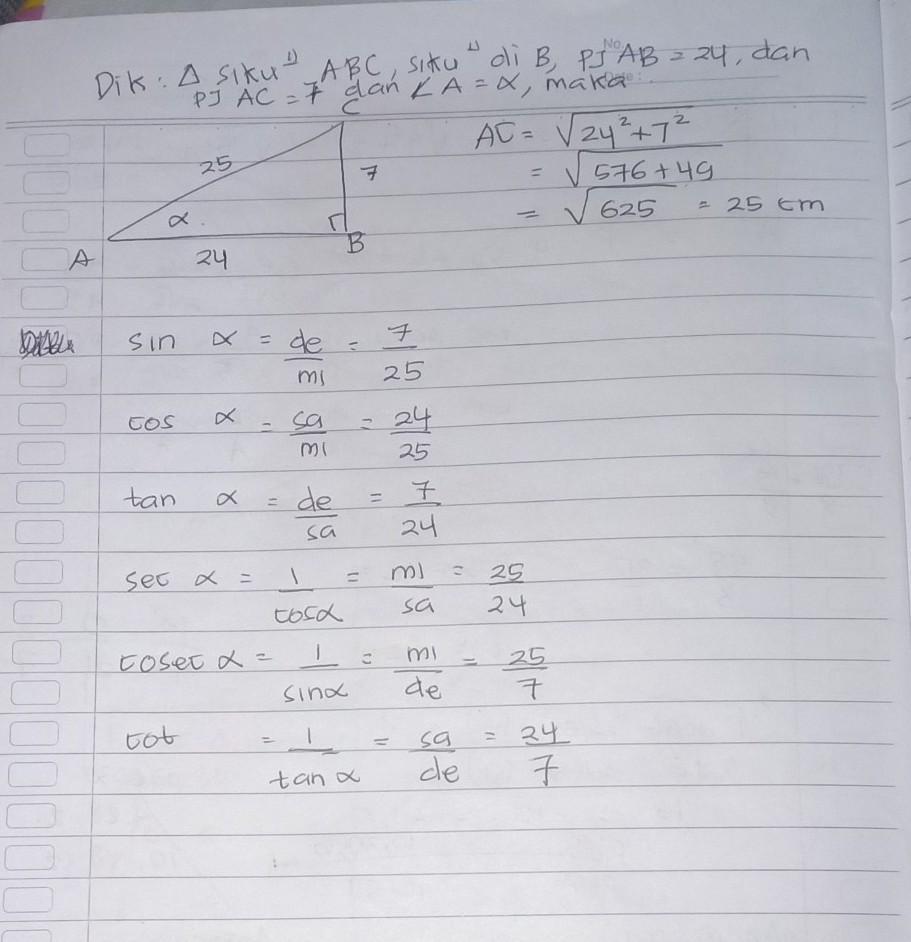 No
Dik : Δ siku" ABC, siku" di B, PJ AB = 24, dan
PJ AC = 7 dan ∠A = α, maka
C
25
7
α
A
24
B
AC = √24² + 7²
= √576 + 49
= √625 = 25 cm
sin α = de/mi = 7/25
cos α = sa/mi = 24/25
tan α = de/sa = 7/24
sec α = 1/cosα = mi/sa = 25/24
cosec α = 1/sinα = mi/de = 25/7
cot = 1/tan α = sa/de = 24/7